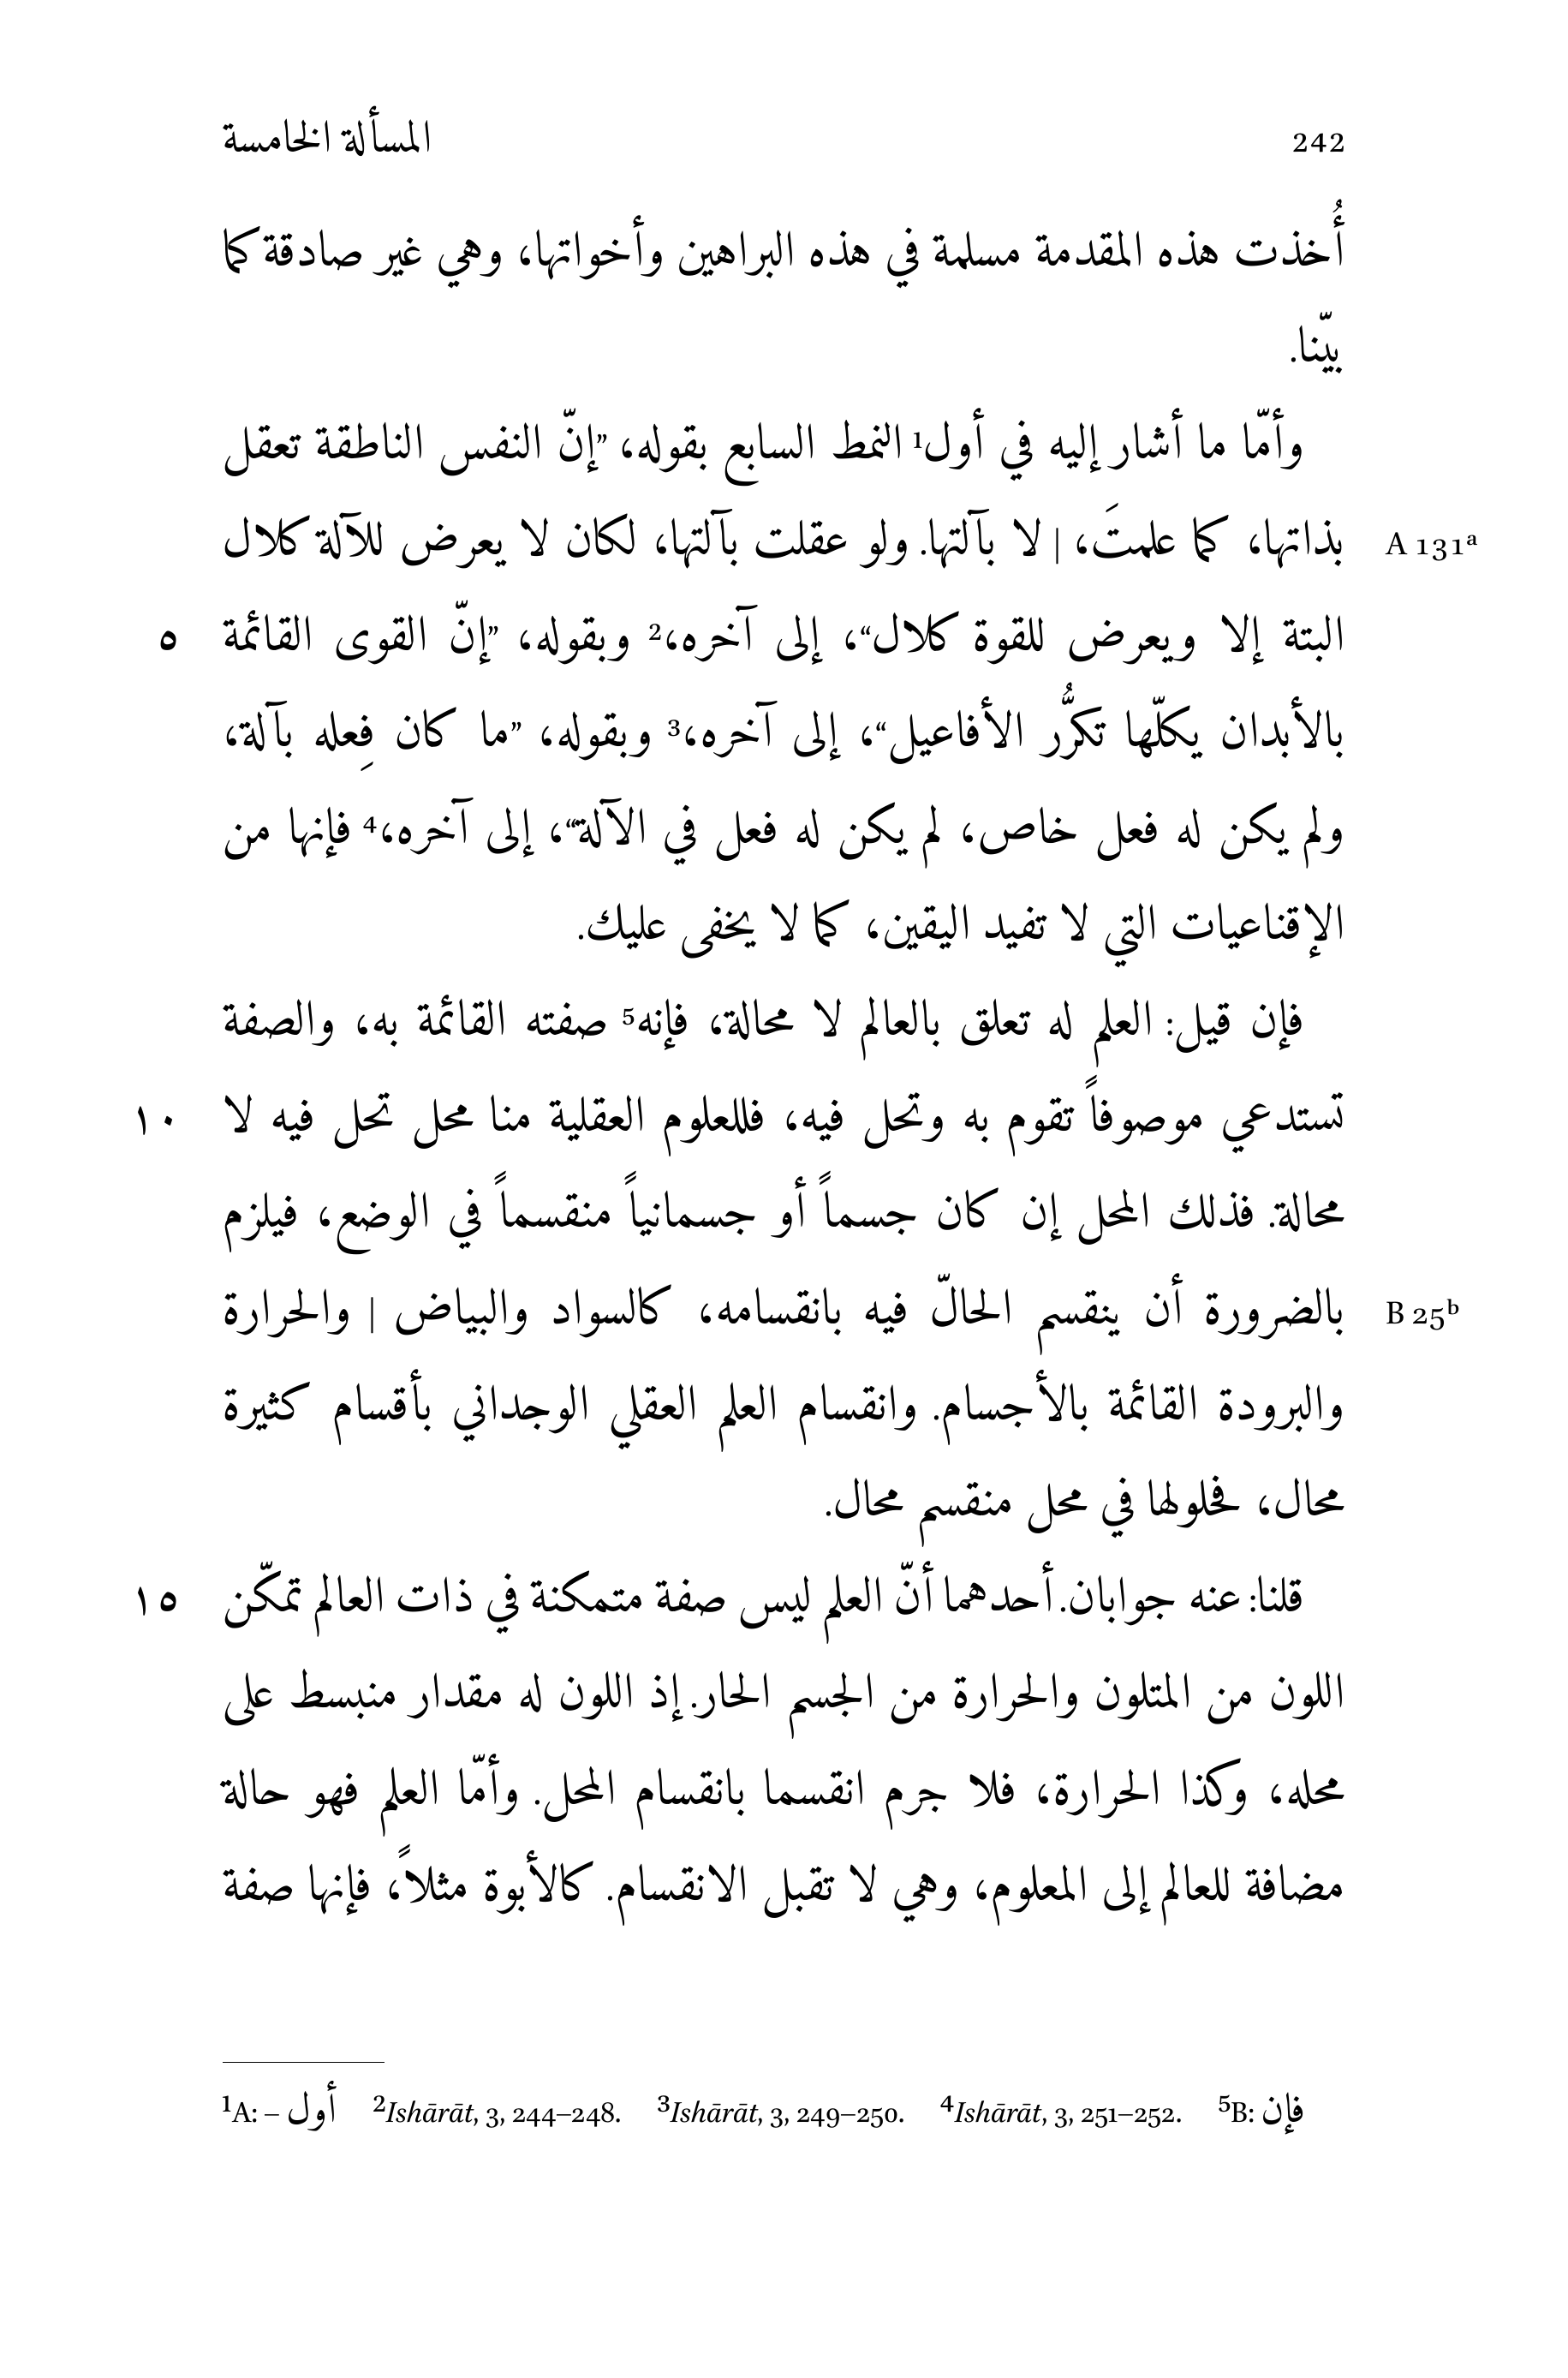 242 المسألة الخامسة
أُخذت هذه المقدمة مسلمة في هذه البراهين وأخواتها، وهي غير صادقة كما
بيّنا.
وأمّا ما أشار إليه في أول¹ النمط السابع بقوله، ”إنّ النفس الناطقة تعقل
A 131ᵃ بذاتها، كما علمتَ، | لا بآلتها. ولو عقلت بآلتها، لكان لا يعرض للآلة كلال
البتة إلا ويعرض للقوة كلال“، إلى آخره،² وبقوله، ”إنّ القوى القائمة ٥
بالأبدان يكلّها تكرُّر الأفاعيل“، إلى آخره،³ وبقوله، ”ما كان فِعله بآلة،
ولم يكن له فعل خاص، لم يكن له فعل في الآلة“، إلى آخره،⁴ فإنها من
الإقناعيات التي لا تفيد اليقين، كما لا يخفى عليك.
فإن قيل: العلم له تعلق بالعالم لا محالة، فإنه⁵ صفته القائمة به، والصفة
تستدعي موصوفاً تقوم به وتحل فيه، فللعلوم العقلية منا محل تحل فيه لا ١٠
محالة. فذلك المحل إن كان جسماً أو جسمانياً منقسماً في الوضع، فيلزم
B 25ᵇ بالضرورة أن ينقسم الحالّ فيه بانقسامه، كالسواد والبياض | والحرارة
والبرودة القائمة بالأجسام. وانقسام العلم العقلي الوجداني بأقسام كثيرة
محال، فحلولها في محل منقسم محال.
قلنا: عنه جوابان. أحدهما أنّ العلم ليس صفة متمكنة في ذات العالم تمكّن ١٥
اللون من المتلون والحرارة من الجسم الحار. إذ اللون له مقدار منبسط على
محله، وكذا الحرارة، فلا جرم انقسما بانقسام المحل. وأمّا العلم فهو حالة
مضافة للعالم إلى المعلوم، وهي لا تقبل الانقسام. كالأبوة مثلاً، فإنها صفة
¹A: – أول ²Ishārāt, 3, 244–248. ³Ishārāt, 3, 249–250. ⁴Ishārāt, 3, 251–252. ⁵B: فإن